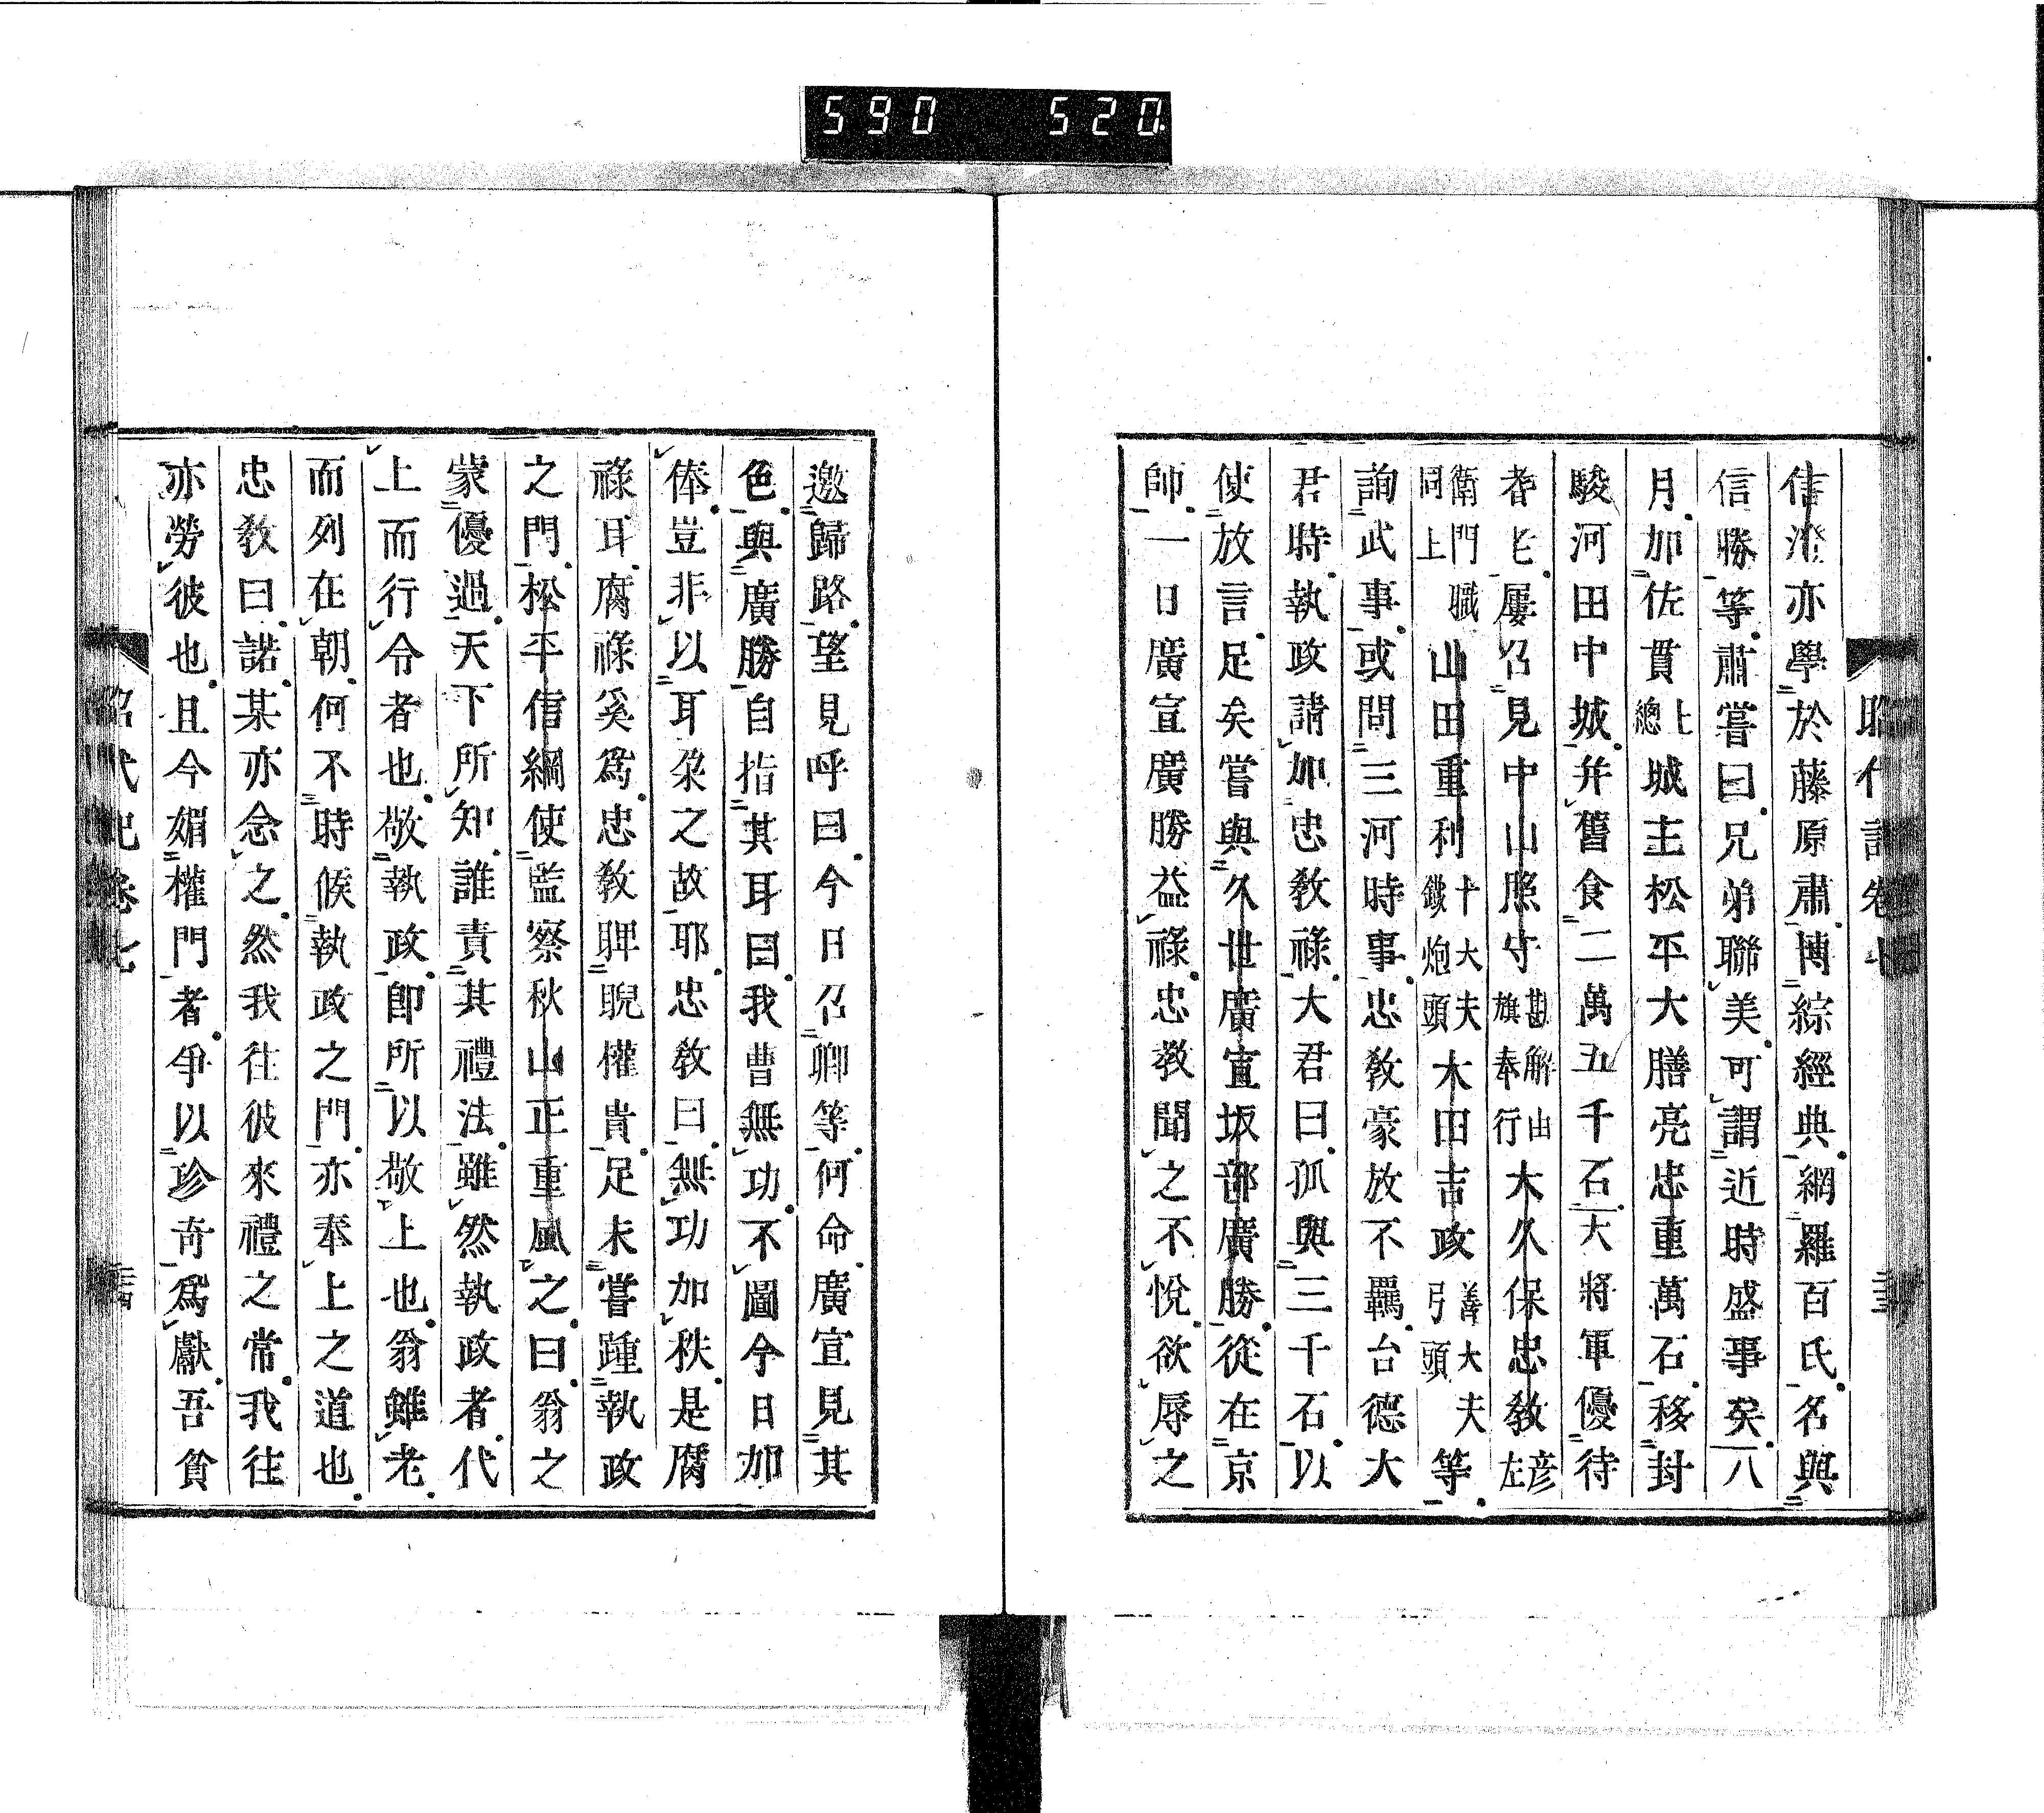 590 520
昭代記卷七
信澄亦學於藤原肅博綜經典網羅百氏名與
信勝等肅嘗曰兄弟聯美可謂近時盛事矣八
月加佐貫上總城主松平大膳亮忠重萬石移封
駿河田中城并舊食二萬五千石大將軍優待
耆老屢召見中山照守勘解由旗奉行大久保忠敎彦左
衛門職同上山田重利十大夫鐵炮頭木田吉政善大夫弓頭等
詢武事或問三河時事忠敎豪放不羈台德大
君時執政請加忠敎祿大君曰孤與三千石以
使放言足矣嘗與久世廣宣坂部廣勝從在京
師一日廣宣廣勝益祿忠敎聞之不悅欲辱之
邀歸路望見呼曰今日召卿等何命廣宣見其
色與廣勝自指其耳曰我曹無功不圖今日加
俸豈非以耳朶之故耶忠敎曰無功加秩是腐
祿耳腐祿奚爲忠敎睥睨權貴足未嘗踵執政
之門松平信綱使監察秋山正重風之曰翁之
蒙優過天下所知誰責其禮法雖然執政者代
上而行令者也敬執政卽所以敬上也翁雖老
而列在朝何不時候執政之門亦奉上之道也
忠敎曰諾某亦念之然我往彼來禮之常我往
亦勞彼也且今媚權門者爭以珍奇爲獻吾貧
昭代記卷七